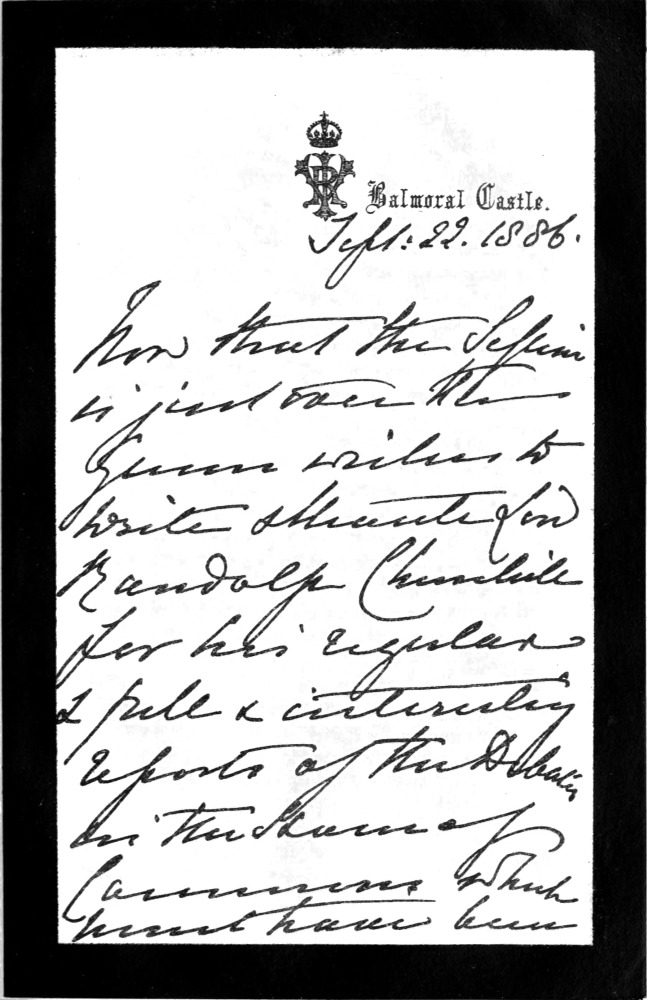 Balmoral Castle.
Sept: 22. 1886.
Now that the Session
is just over the
Queen wishes to
write & thank Lord
Randolph Churchill
for his regular
& full & interesting
reports of the Debates
in the House of
Commons which
must have been